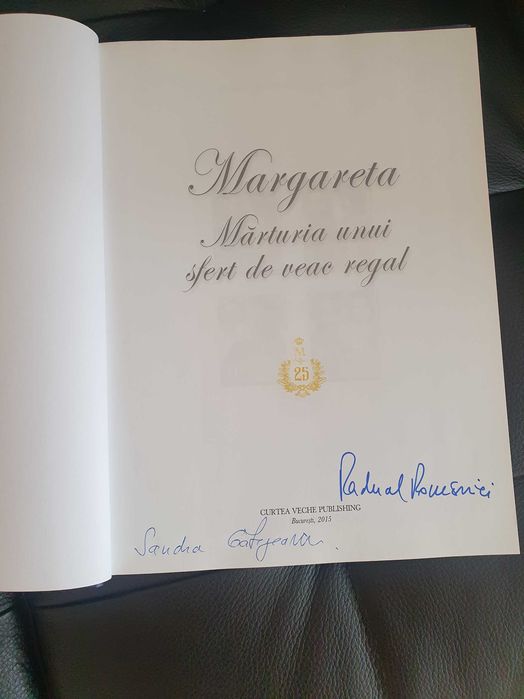 Margareta
Mărturia unui
sfert de veac regal
M
25
Radu al României
CURTEA VECHE PUBLISHING
București, 2015
Sandra